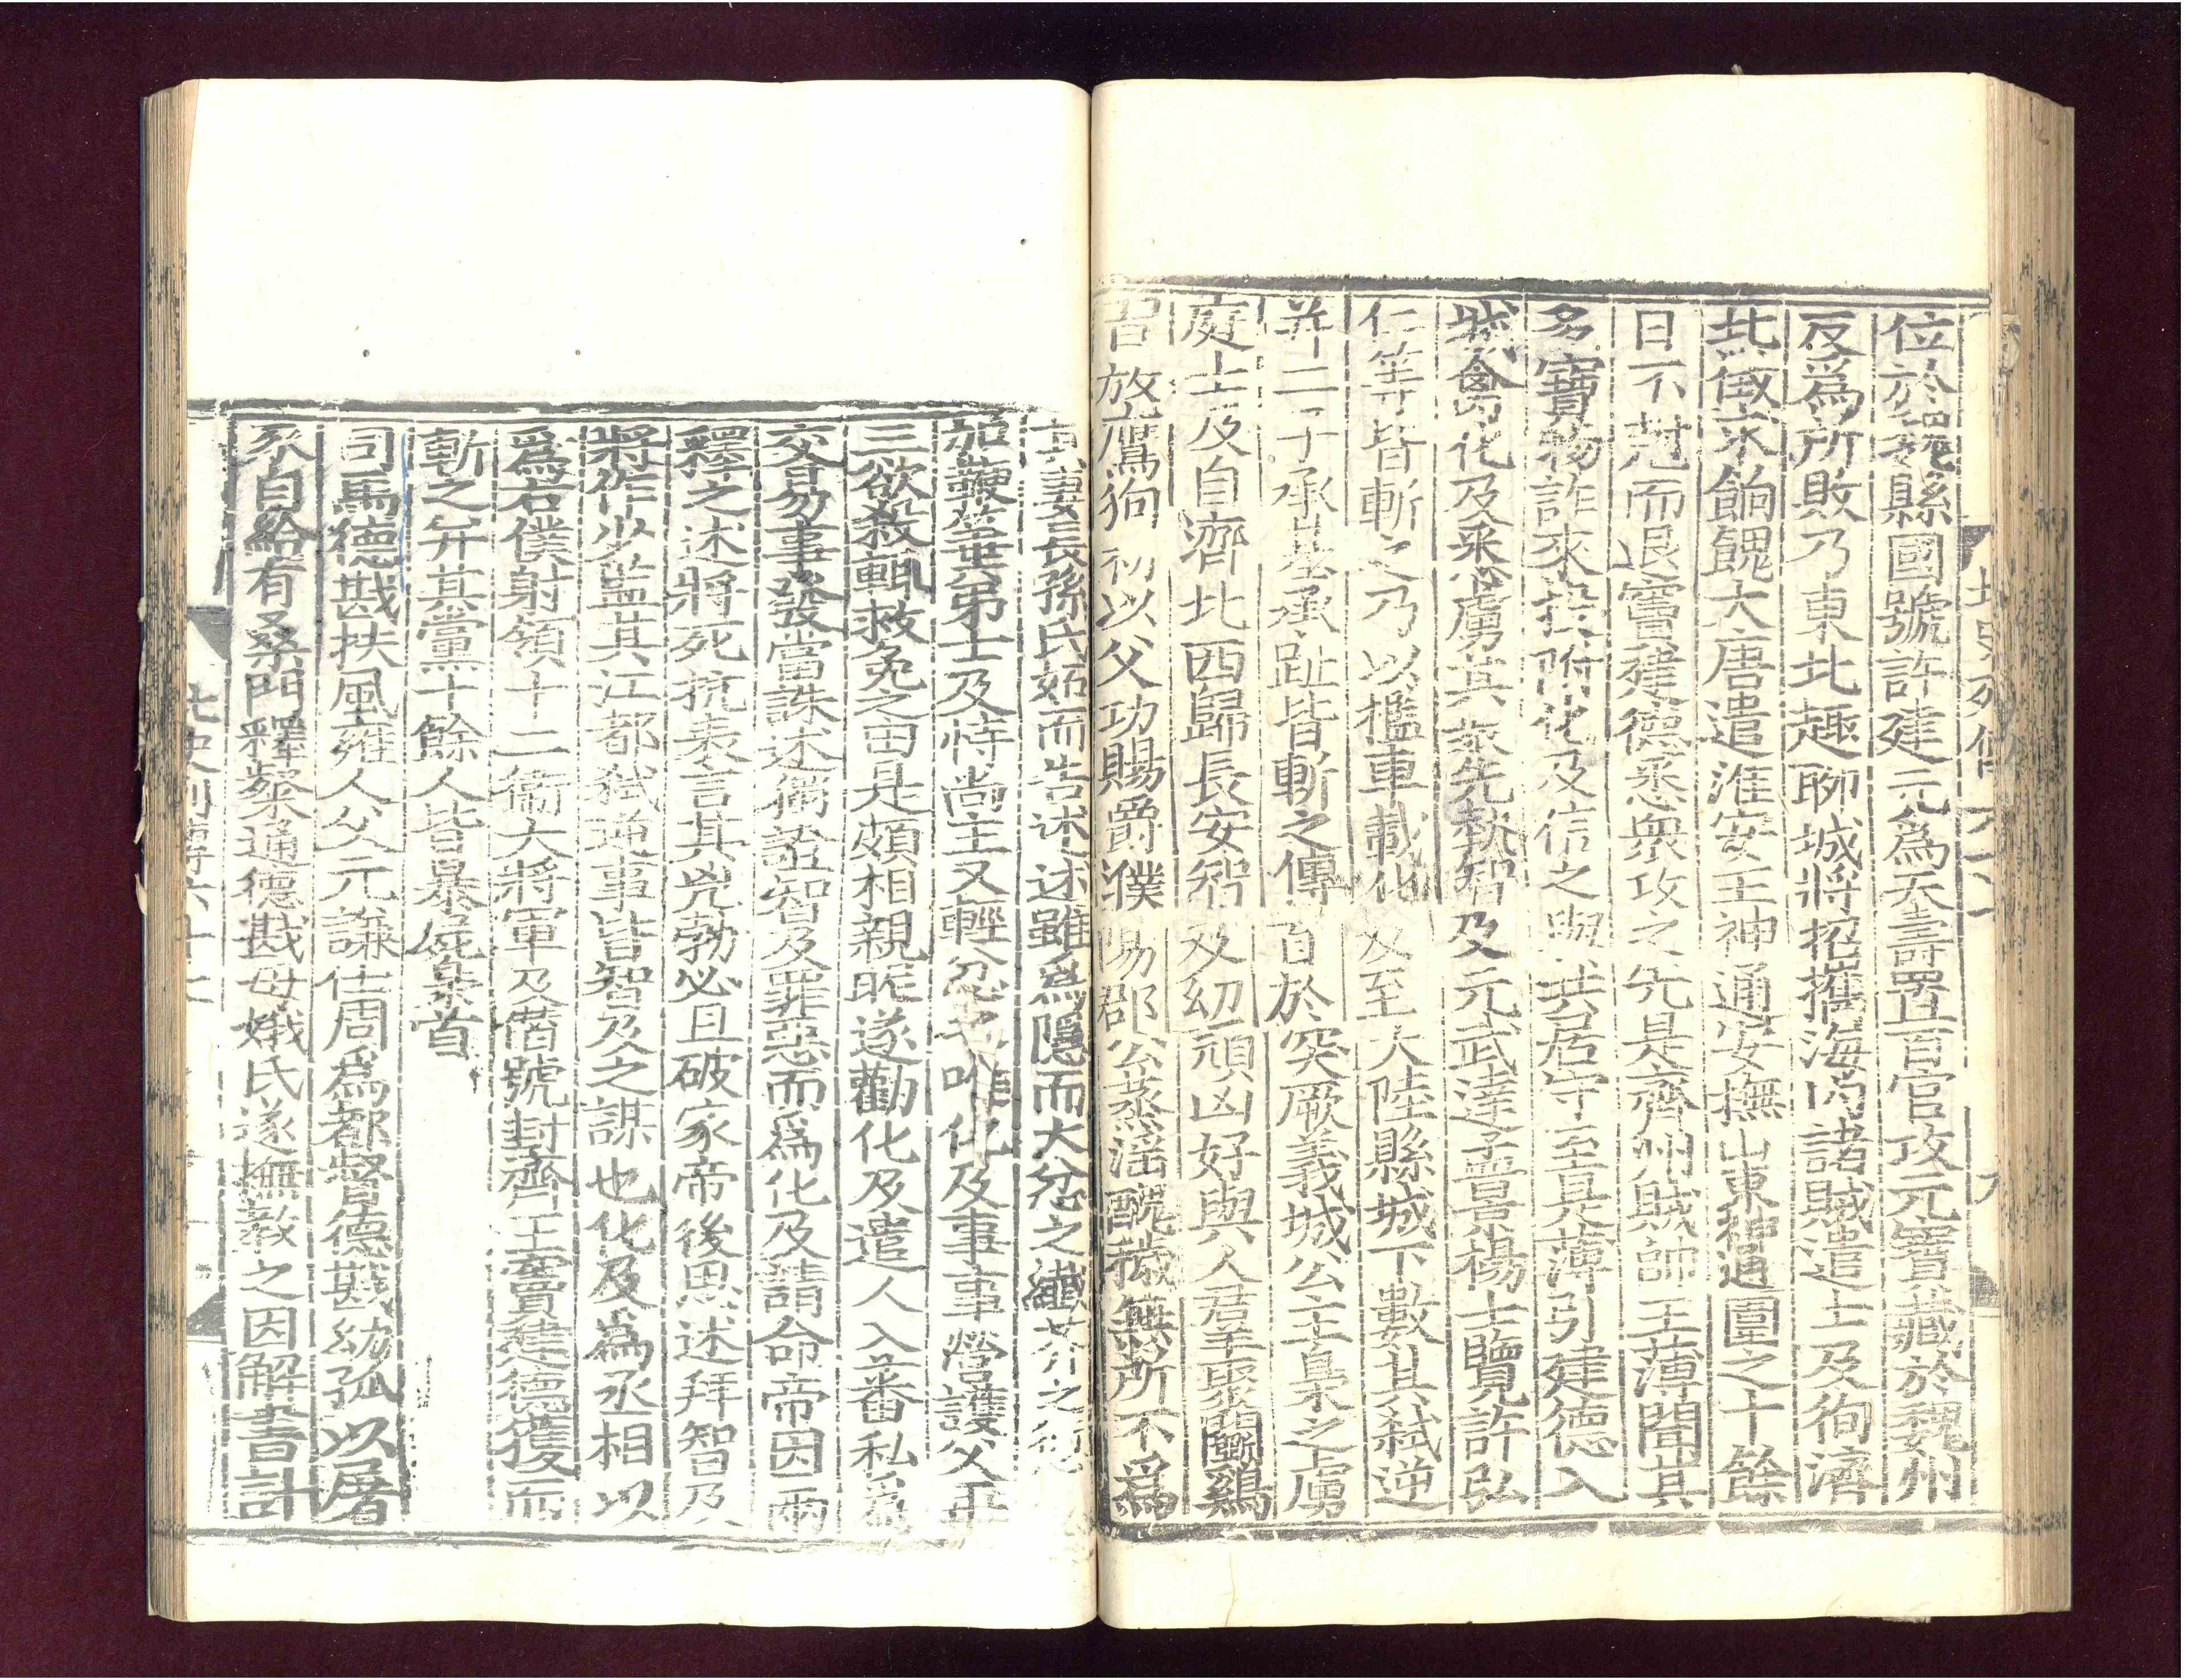 位於魏縣國號許建元爲天壽置百官攻元寶藏於魏州
反爲所敗乃東北趣聊城將招攜海內諸賊遣士及徇濟
北徵求餉餽大唐遣淮安王神通安撫山東神通圍之十餘
日不剋而退竇建德悉衆攻之先是齊州賊帥王薄聞其
多寶物詐來投附化及信之與共居守至是薄引建德入
城禽化及悉虜其衆先執智及元武達孟景楊士覽許弘
仁等皆斬之乃以檻車載化及至大陸縣城下數其弒逆
并二子承基承趾皆斬之傳首於突厥義城公主梟之虜
庭士及自濟北西歸長安智及幼頑凶好與人羣聚鬭鷄
習放鷹狗初以父功賜爵濮陽郡公蒸淫醜穢無所不爲
其妻長孫氏妬而告述述雖爲隱而大忿之纖芥之愆
加鞭箠弟士及恃尚主又輕忽之唯化及事事營護父再
三欲殺輒救免之由是頗相親昵遂勸化及遣人入蕃私爲
交易事發當誅述獨證智及罪惡而爲化及請命帝因兩
釋之述將死抗表言其兇勃必且破家帝後思述拜智及
將作少監其江都弒逆事皆智及之謀也化及爲丞相以
爲右僕射領十二衞大將軍及僭號封齊王竇建德獲而
斬之并其黨十餘人皆暴屍梟首
司馬德戡扶風雍人父元謙仕周爲都督德戡幼孤以屠
豕自給有桑門釋粲通德戡母娥氏遂撫教之因解書計
北史列傳六十七